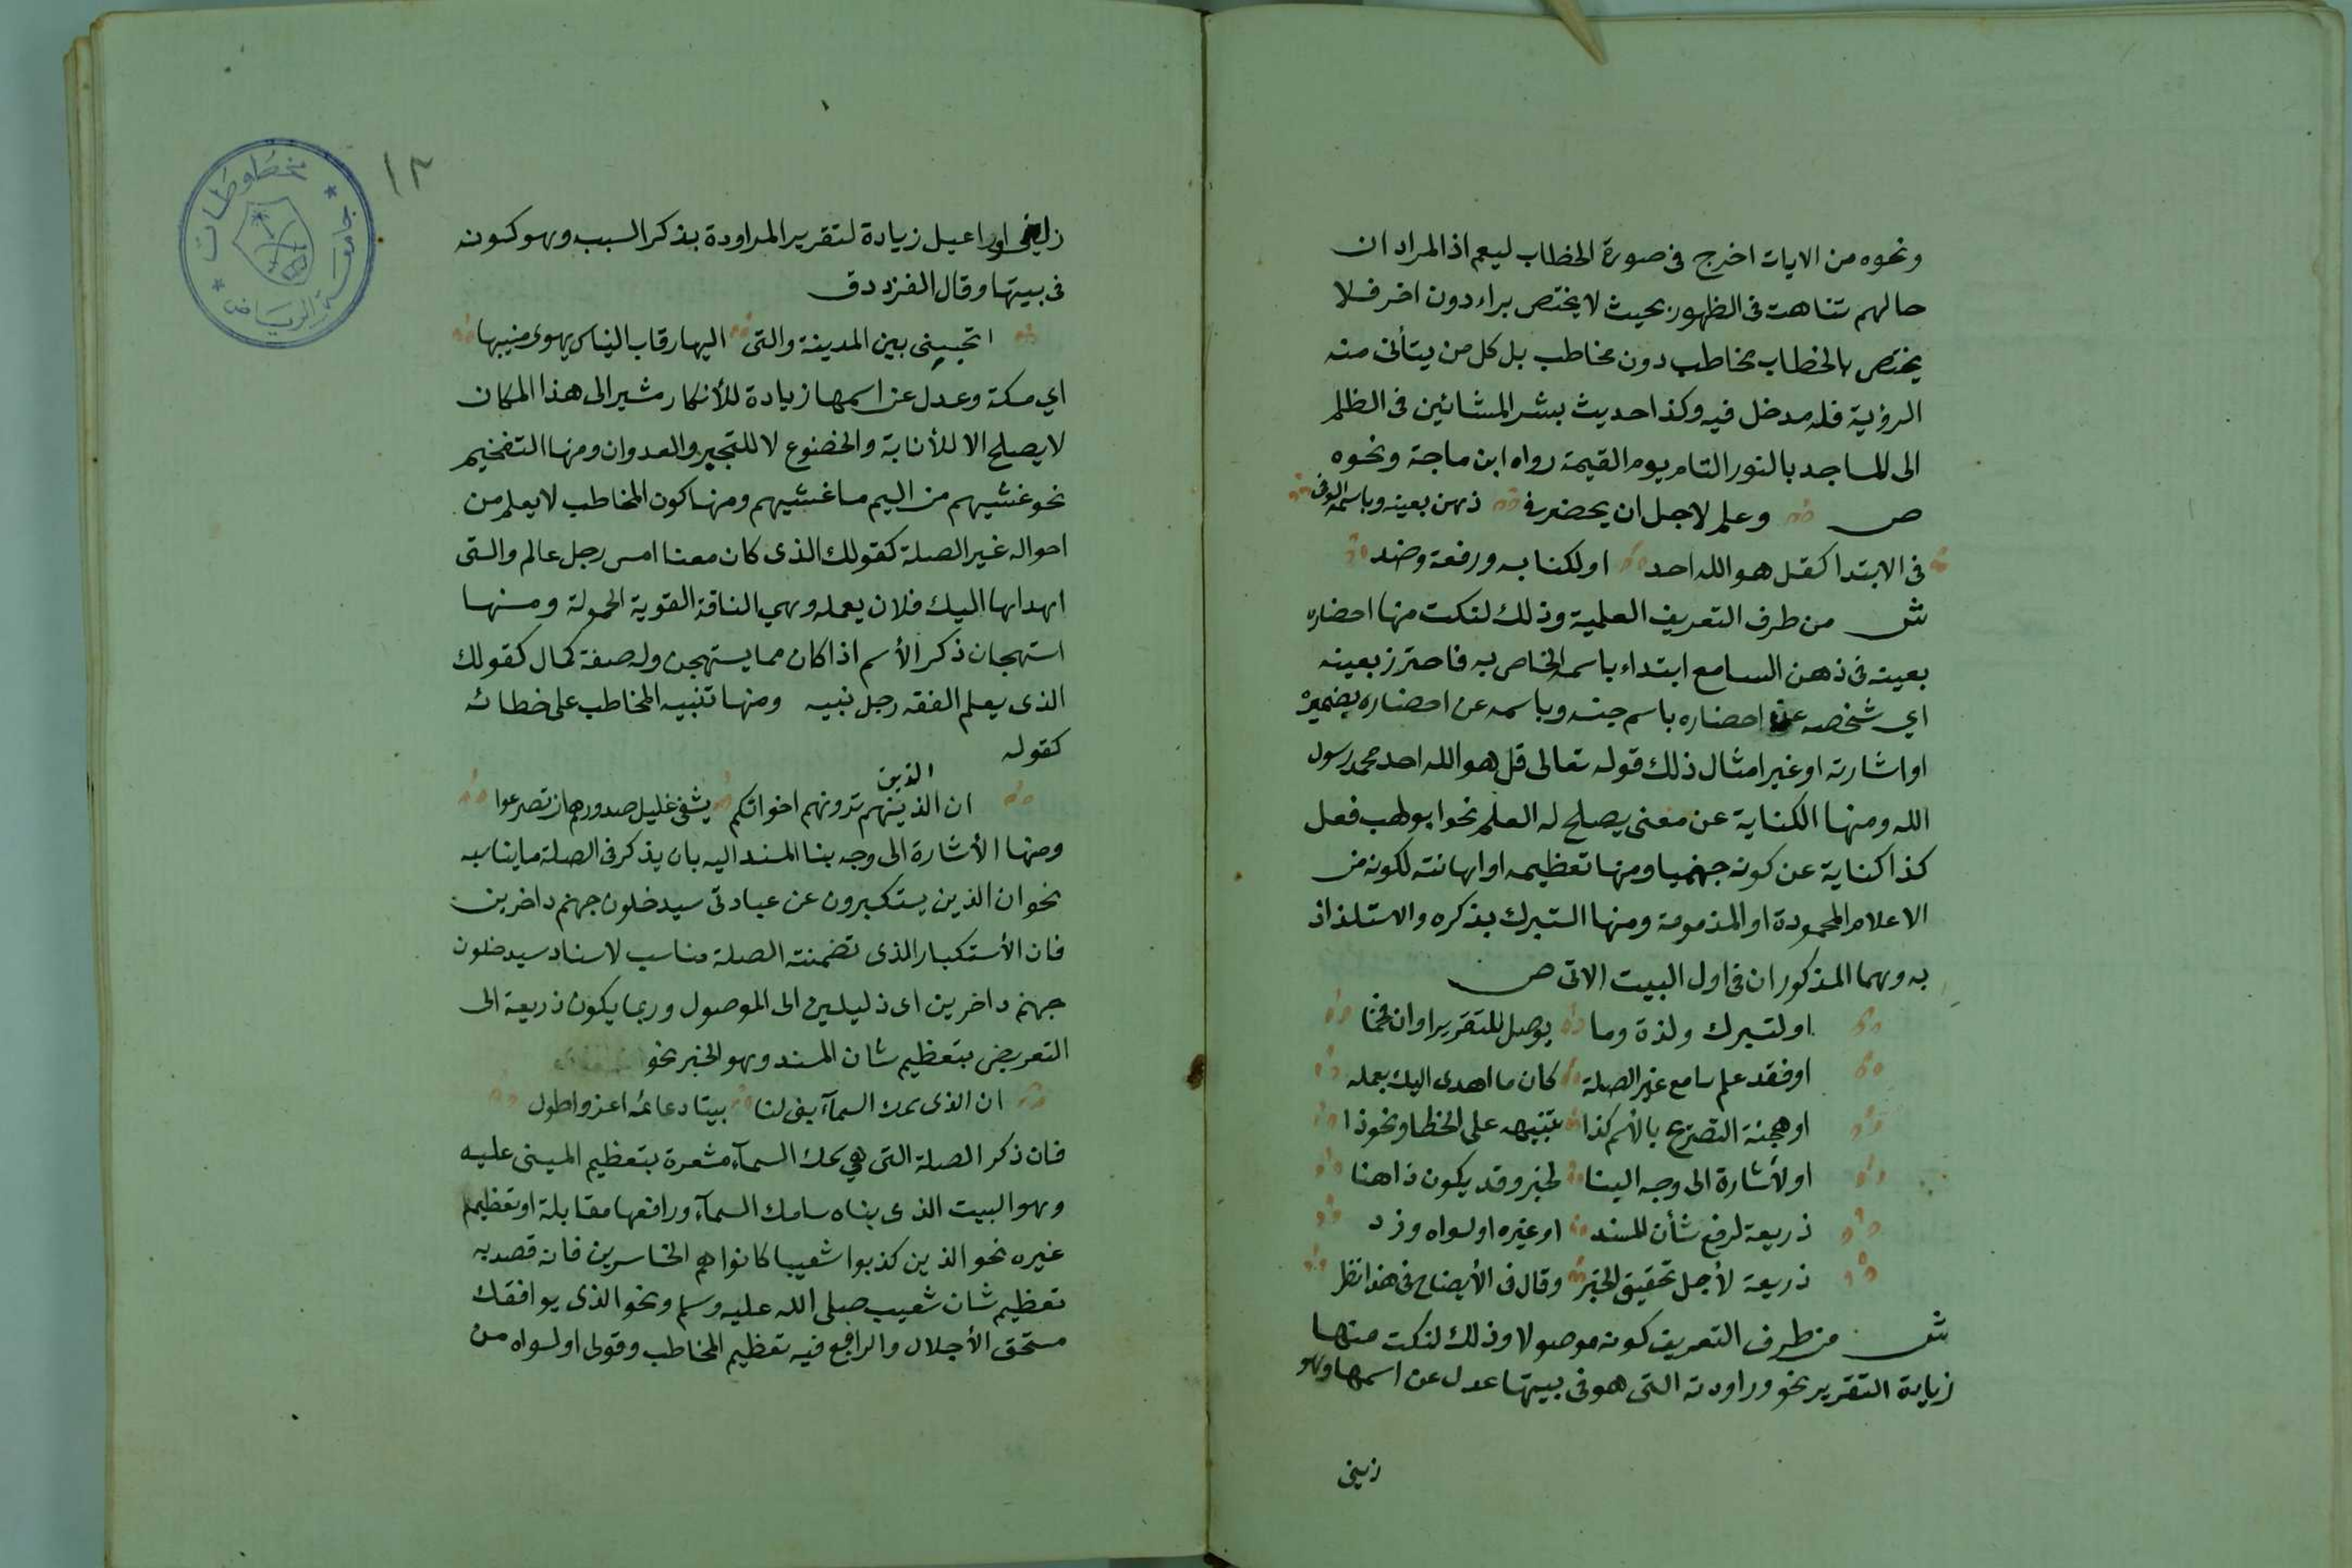 ونحوه من الايات اخرج فى صورة الخطاب ليعم اذ المراد ان
حالهم تناهت فى الظهور بحيث لا يختص براء دون اخر فلا
يختص بالخطاب مخاطب دون مخاطب بل كل من يتأتى منه
الرؤية فله مدخل فيه وكذا حديث بشر المشائين فى الظلم
الى المساجد بالنور التام يوم القيمة رواه ابن ماجة ونحوه
ص وعلم لاجل ان يحضر فى ذهن بعينه وباسمه الوفى
فى الابتدا كقل هو الله احد او لكناية ورفعة وضد
ش من طرف التعريف العلمية وذلك لنكت منها احضاره
بعينه فى ذهن السامع ابتداء باسمه الخاص به فاحترز بعينه
اي شخصه عن احضاره باسم جنسه وباسمه عن احضاره بضميره
او اشارته او غير امثال ذلك قوله تعالى قل هو الله احد محمد رسول
الله ومنها الكناية عن معنى يصلح له العلم نحو ابو لهب فعل
كذا كناية عن كونه جهنميا ومنها تعظيمه او اهانته لكونه من
الاعلام المحمودة او المذمومة ومنها التبرك بذكره والاستلذاذ
به وهما المذكوران فى اول البيت الاتى ص
او لتبرك ولذة وما يوصل للتقرير او ان فخما
او فقد علم سامع غير الصلة كان ما اهدى اليك يعمله
او هجنة التصريح بالأسم كذا تنبيهه على الخطا ونحو ذا
او لأشارة الى وجه البنا لخبر وقد يكون ذا هنا
ذريعة لرفع شأن المسند او غيره او لسواه وزد
ذريعة لأجل تحقيق الخبر وقال فى الأيضاح فى هذا نظر
ش من طرف التعريف كونه موصولا وذلك لنكت منها
زيادة التقرير نحو وراودته التى هو فى بيتها عدل عن اسمها وهو
١٢
مخطوطات
جامعة الرياض
زليخا او راعيل زيادة لتقرير المراودة بذكر السبب وهو كونه
فى بيتها وقال الفرزدق
اتحبسنى بين المدينة والتى اليها رقاب الناس يهوى منيبها
اي مكة وعدل عن اسمها زيادة للأنكار مشير الى هذا المكان
لا يصلح الا للأنابة والخضوع لا للتجبر والعدوان ومنها التفخيم
نحو غشيهم من اليم ما غشيهم ومنها كون المخاطب لا يعلم من
احواله غير الصلة كقولك الذى كان معنا امس رجل عالم والتى
اهداها اليك فلان يعمله وهي الناقة القوية الحمولة ومنها
استهجان ذكر الأسم اذا كان مما يستهجن وله صفة كمال كقولك
الذى يعلم الفقه رجل نبيه ومنها تنبيه المخاطب على خطائه
كقوله
الذين
ان الذينهم ترونهم اخوانكم يشفى غليل صدورهم ان تصرعوا
ومنها الأشارة الى وجه بنا المسند اليه بان يذكر فى الصلة ما يناسبه
نحو ان الذين يستكبرون عن عبادتى سيدخلون جهنم داخرين
فان الأستكبار الذى تضمنته الصلة مناسب لاسناد سيدخلون
جهنم داخرين اى ذليلين الى الموصول وربما يكون ذريعة الى
التعريض بتعظيم شان المسند وهو الخبر نحو
ان الذى سمك السمآء بنى لنا بيتا دعائمه اعز واطول
فان ذكر الصلة التى هي سمك السمآء مشعرة بتعظيم المبنى عليه
وهو البيت الذى بناه سامك السمآء ورافعها مقابلة او تعظيم
غيره نحو الذين كذبوا شعيبا كانوا هم الخاسرين فانه قصد به
تعظيم شان شعيب صلى الله عليه وسلم ونحو الذى يوافقك
مستحق الأجلال والرافع فيه تعظيم المخاطب وقولى او لسواه من